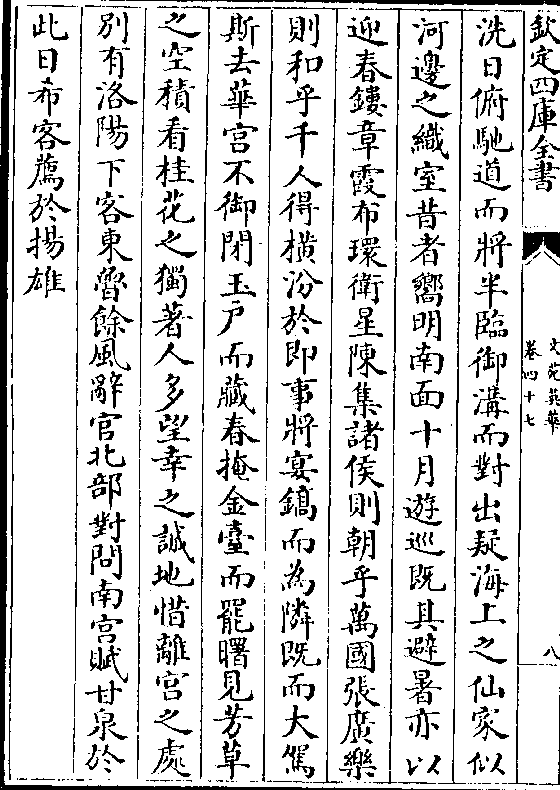 欽定四庫全書
文苑英華
卷四十七
八
洗日俯馳道而將半臨御溝而對出疑海上之仙家似
河邊之織室昔者嚮明南面十月遊巡既具避暑亦以
迎春鏤章霞布環衛星陳集諸侯則朝乎萬國張廣樂
則和乎千人得橫汾於即事將宴鎬而為隣既而大駕
斯去華宮不御閉玉戶而藏春掩金臺而罷曙見芳草
之空積看桂花之獨著人多望幸之誠地惜離宮之處
別有洛陽下客東魯餘風辭官北部對問南宮賦甘泉於
此日希客薦於揚雄